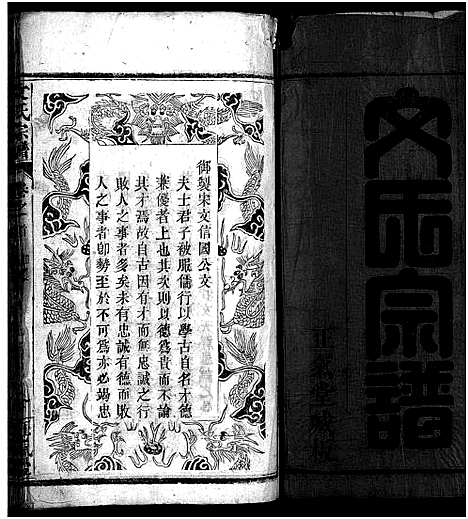 文氏宗譜
御製宋文信國公文
夫士君子被服儒行以學古自名才德
兼優者上也其次則以德為貴而不論
其才焉故自古因有才而無忠誠之行
敗人之事者多矣未有忠誠有德而敗
人之事者卽勢至於不可為亦必竭忠
氏宗譜